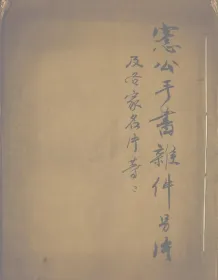 憲公手書雜件另件
及各家名片等: